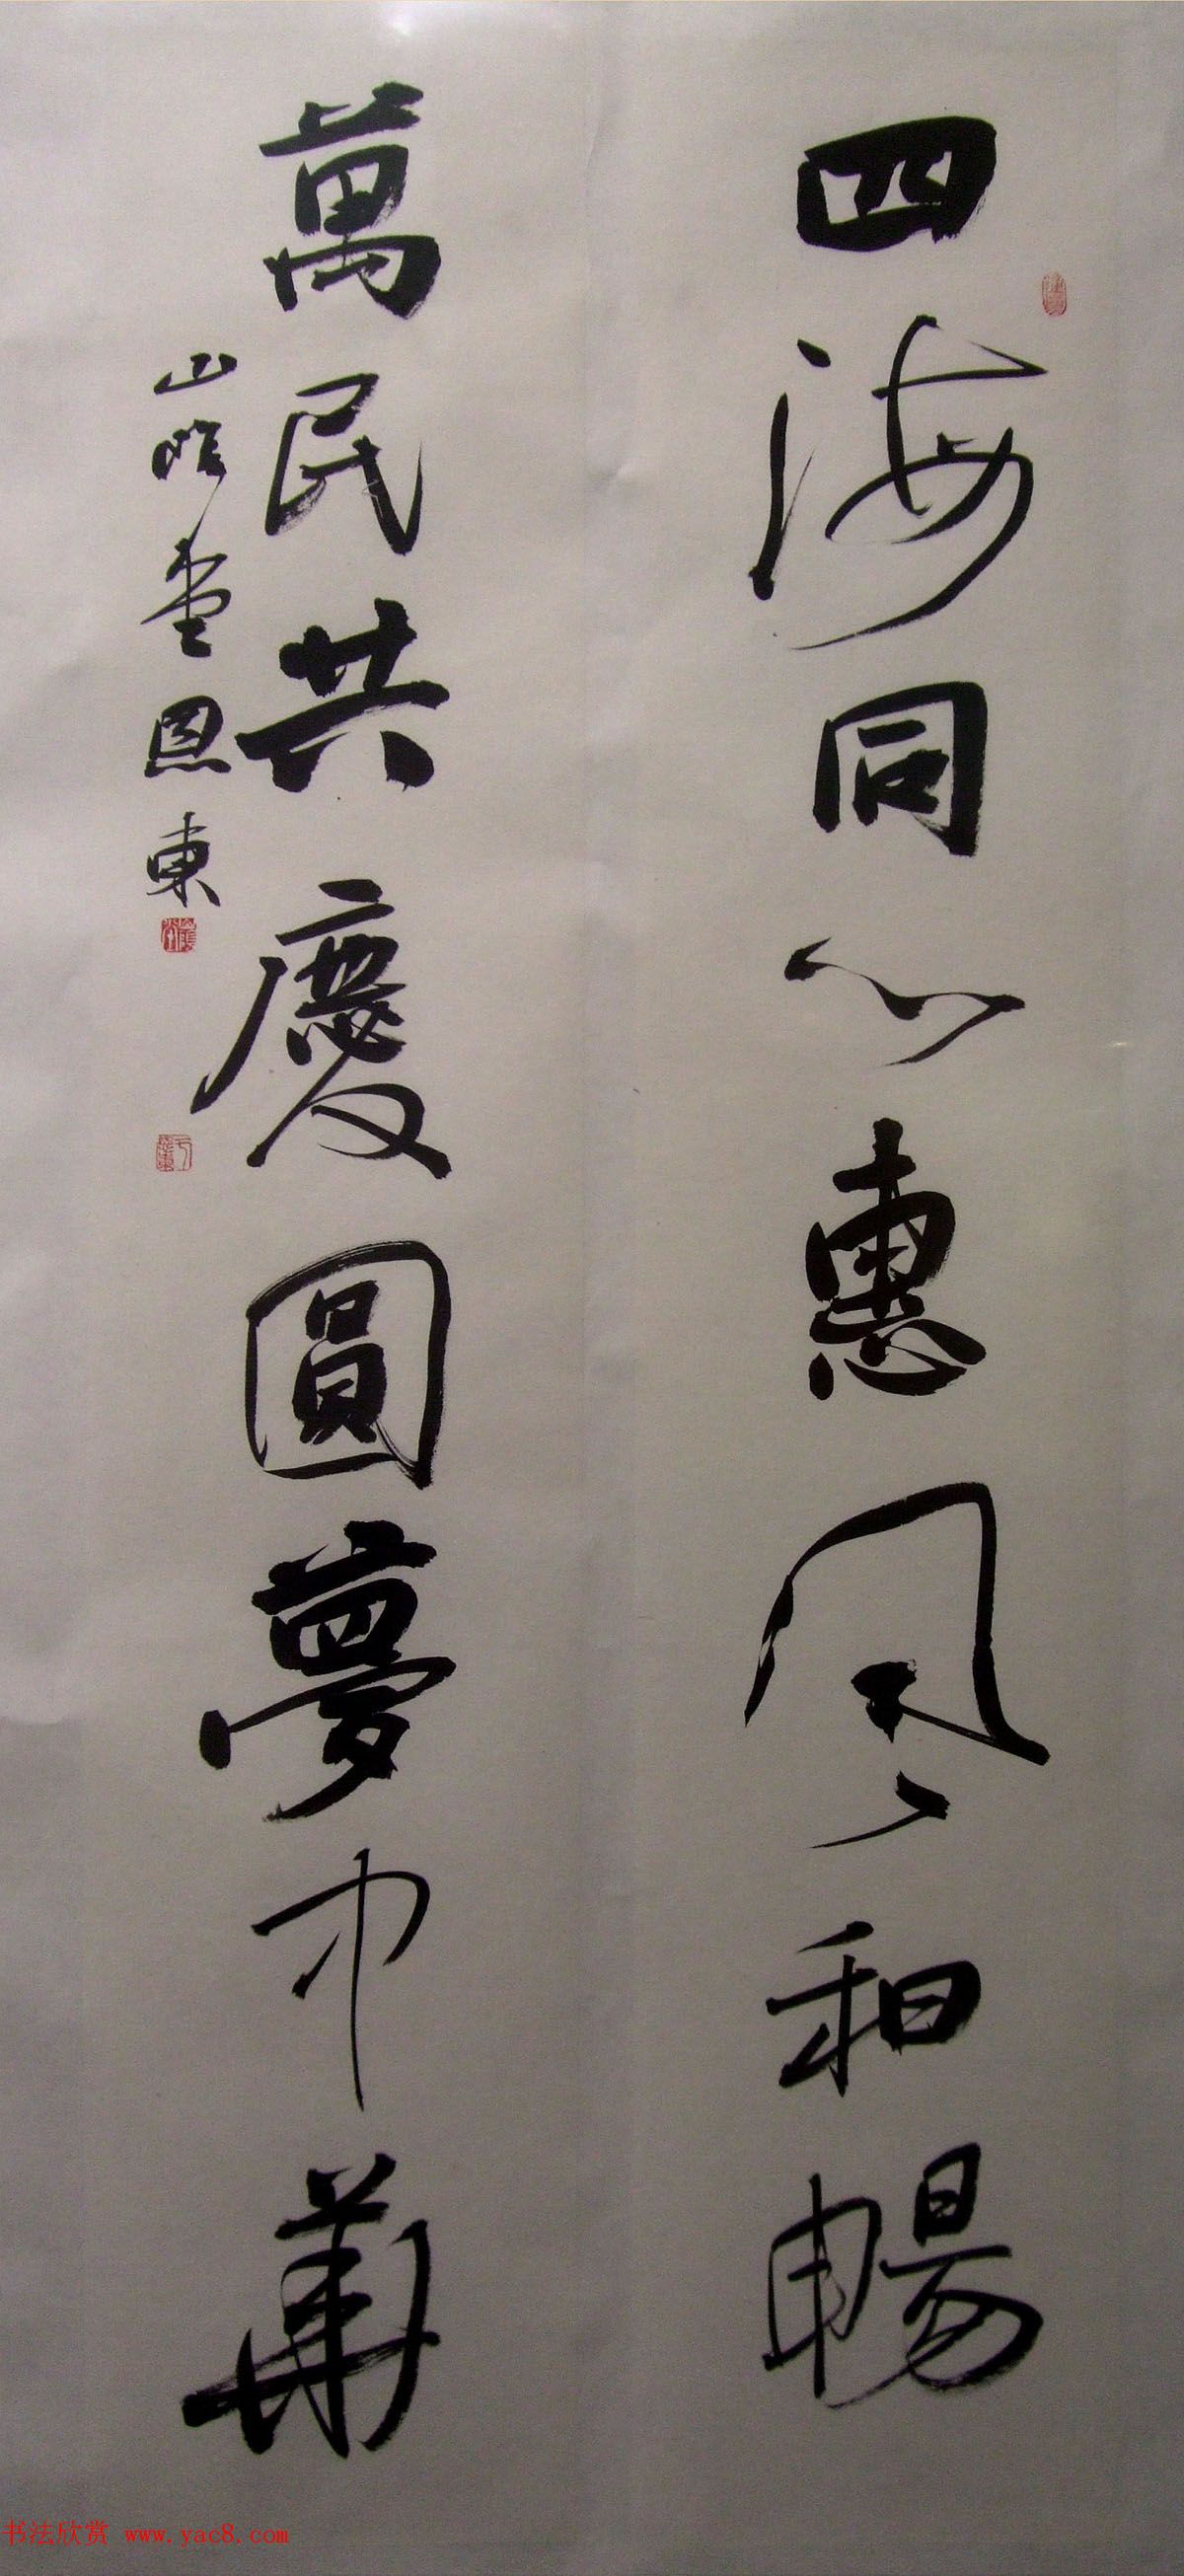 四海同心惠風和暢
萬民共慶圓夢中華
山陰堂恩東
书法欣赏 www.yac8.com